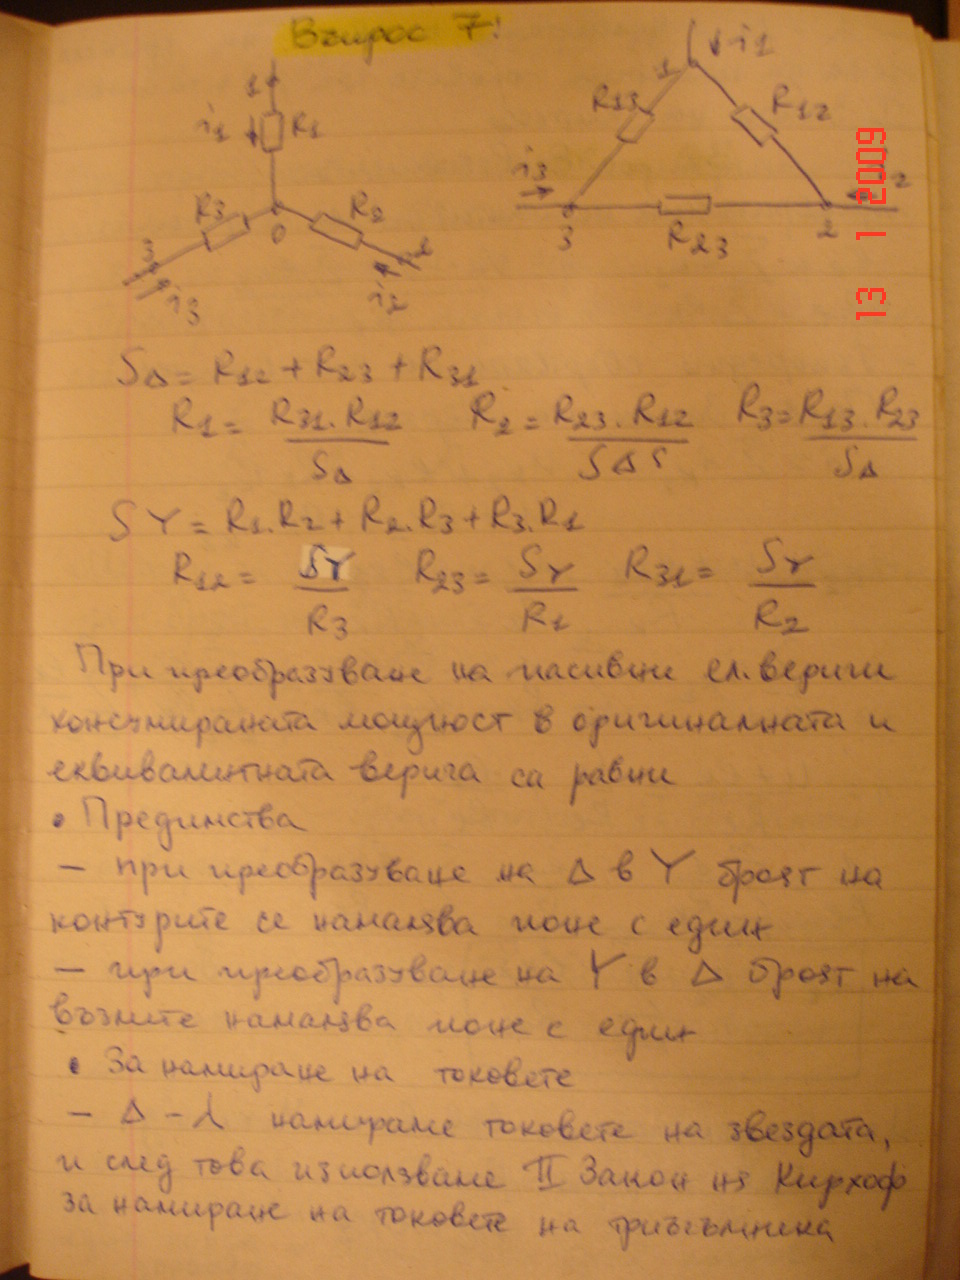 Въпрос 7!
1
i1 R1
R3 R2
3 0 2
i3 i2
1 i1
R13 R12
i3 i2
3 2
R23
13 1 2009
SΔ = R12 + R23 + R31
R1 = R31.R12 / SΔ R2 = R23.R12 / SΔ R3 = R13.R23 / SΔ
SY = R1.R2 + R2.R3 + R3.R1
R12 = SY / R3 R23 = SY / R1 R31 = SY / R2
При преобразуване на пасивни ел. вериги
консумираната мощност в оригиналната и
еквивалентната верига са равни
• Прединства
– при преобразуване на Δ в Y броят на
контурите се намалява поне с един
– при преобразуване на Y в Δ броят на
възлите намалява поне с един
• За намиране на токовете
– Δ – λ намираме токовете на звездата,
и след това използваме II Закон на Кирхоф
за намиране на токовете на триъгълника